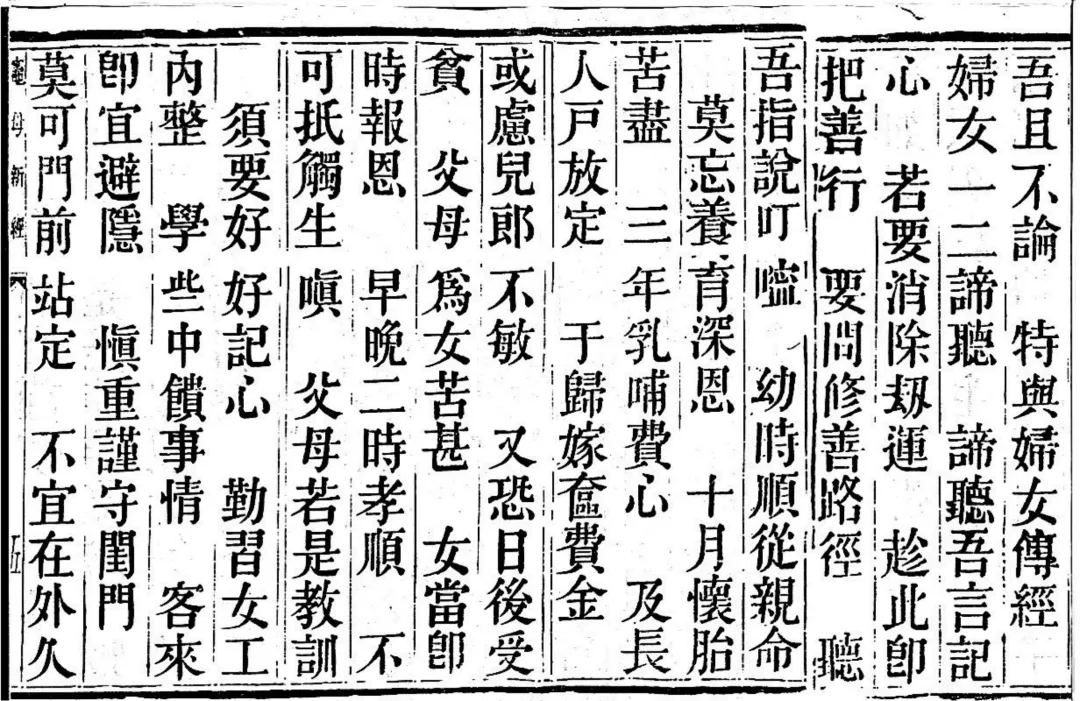 吾且不論　特與婦女傳經
婦女一二諦聽　諦聽吾言記
心　若要消除刼運　趁此卽
把善行　要問修善路徑　聽
吾指說叮嚀　幼時順從親命
莫忘養育深恩　十月懷胎
苦盡　三年乳哺費心　及長
人戸放定　于歸嫁奩費金
或慮兒郎不敏　又恐日後受
貧　父母爲女苦甚　女當卽
時報恩　早晚二時孝順　不
可抵觸生嗔　父母若是教訓
須要好好記心　勤習女工
內整　學些中饋事情　客來
卽宜避隱　愼重謹守閨門
莫可門前站定　不宜在外久
竈母新經　五